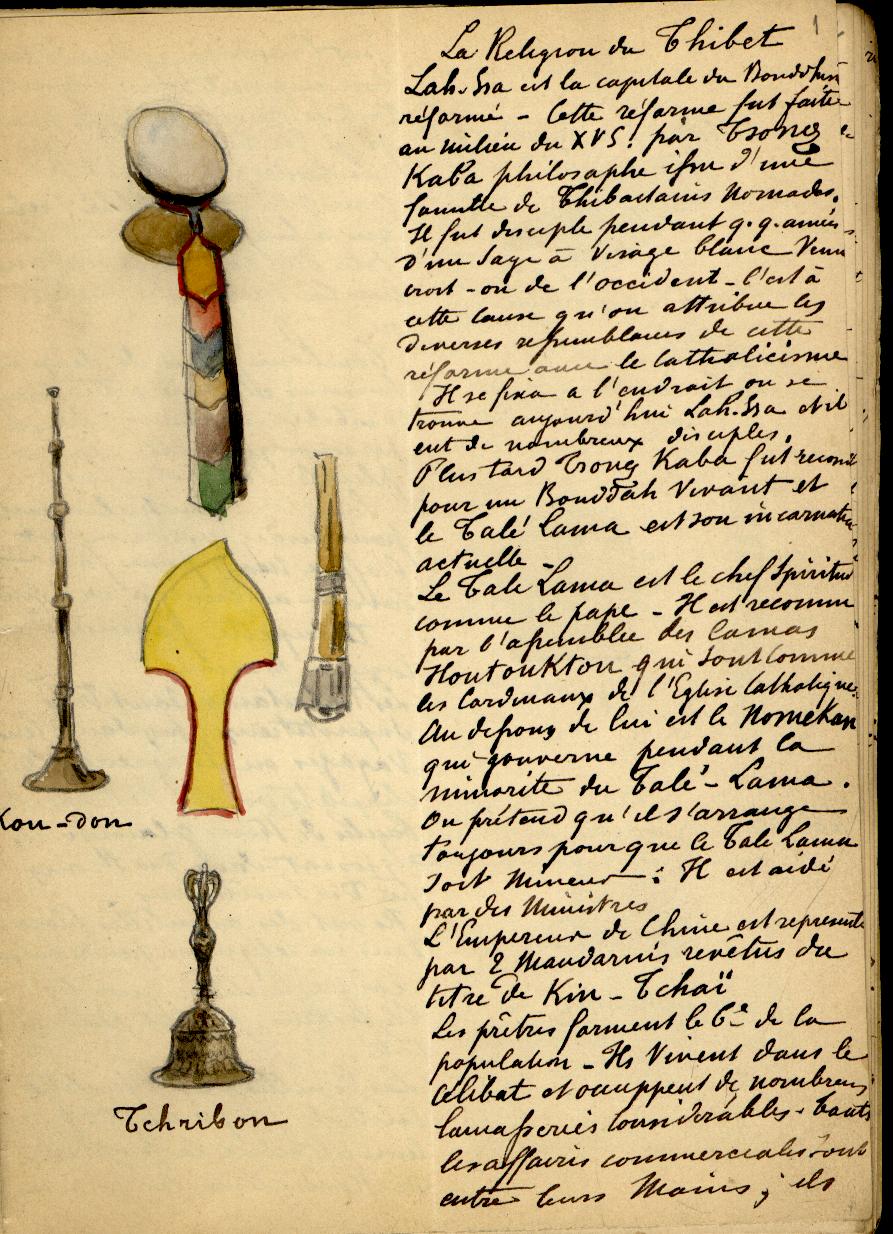 1
La Religion du Thibet
Lah-Ssa est la capitale du Bouddhis
réformé - Cette réforme fut faite
au milieu du XVS! par Tsong
Kaba philosophe issu d'une
famille de Thibaetains Nomades.
Il fut disciple pendant q.q. années
d'un Sage à Visage blanc Venu
croit-on de l'occident - C'est à
cette cause qu'on attribue les
diverses ressemblances de cette
réforme avec le Catholicisme
Il se fixa a l'endroit ou se
trouve aujourd'hui Lah-Ssa et il
eut de nombreux disciples.
Plus tard Tsong Kaba fut reconnu
pour un Bouddah Vivant et
le Talé Lama est son incarnation
actuelle -
Le Tale Lama est le chef Spirituel
comme le pape - Il est reconnu
par l'assemblée des Lamas
Houtouktou qui sont comme
les Cardinaux de l'Eglise Catholique.
Au dessous de lui est le Nomekan
qui gouverne pendant la
minorité du Talé-Lama.
On prétend qu'il s'arrange
toujours pour que le Tale Lama
soit Mineur : Il est aidé
par des Ministres
L'Empereur de Chine est représenté
par 2 Mandarins revêtus du
titre de Kin-Tchaï
Les prêtres forment le 6e de la
population - Ils Vivent dans le
Célibat et occuppent de nombreuses
lamasseries considérables. Toutes
les affaires commerciales sont
entre leurs Mains ; ils
Kou-don
Tchribon